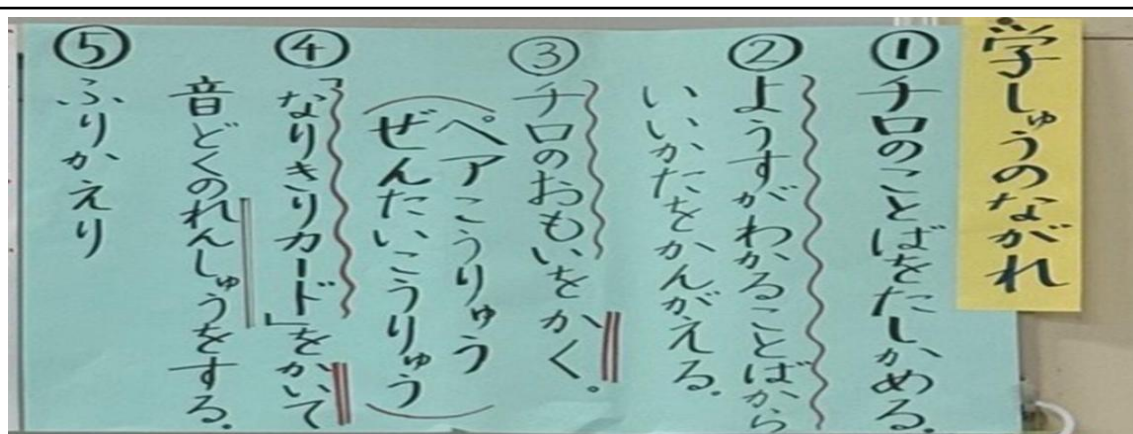 学しゅうのながれ
①チロのことばをたしかめる。
②ようすがわかることばから
いいかたをかんがえる。
③チロのおもいをかく。
(ペアこうりゅう
ぜんたいこうりゅう)
④「なりきりカード」をかいて
音どくのれんしゅうをする。
⑤ふりかえり